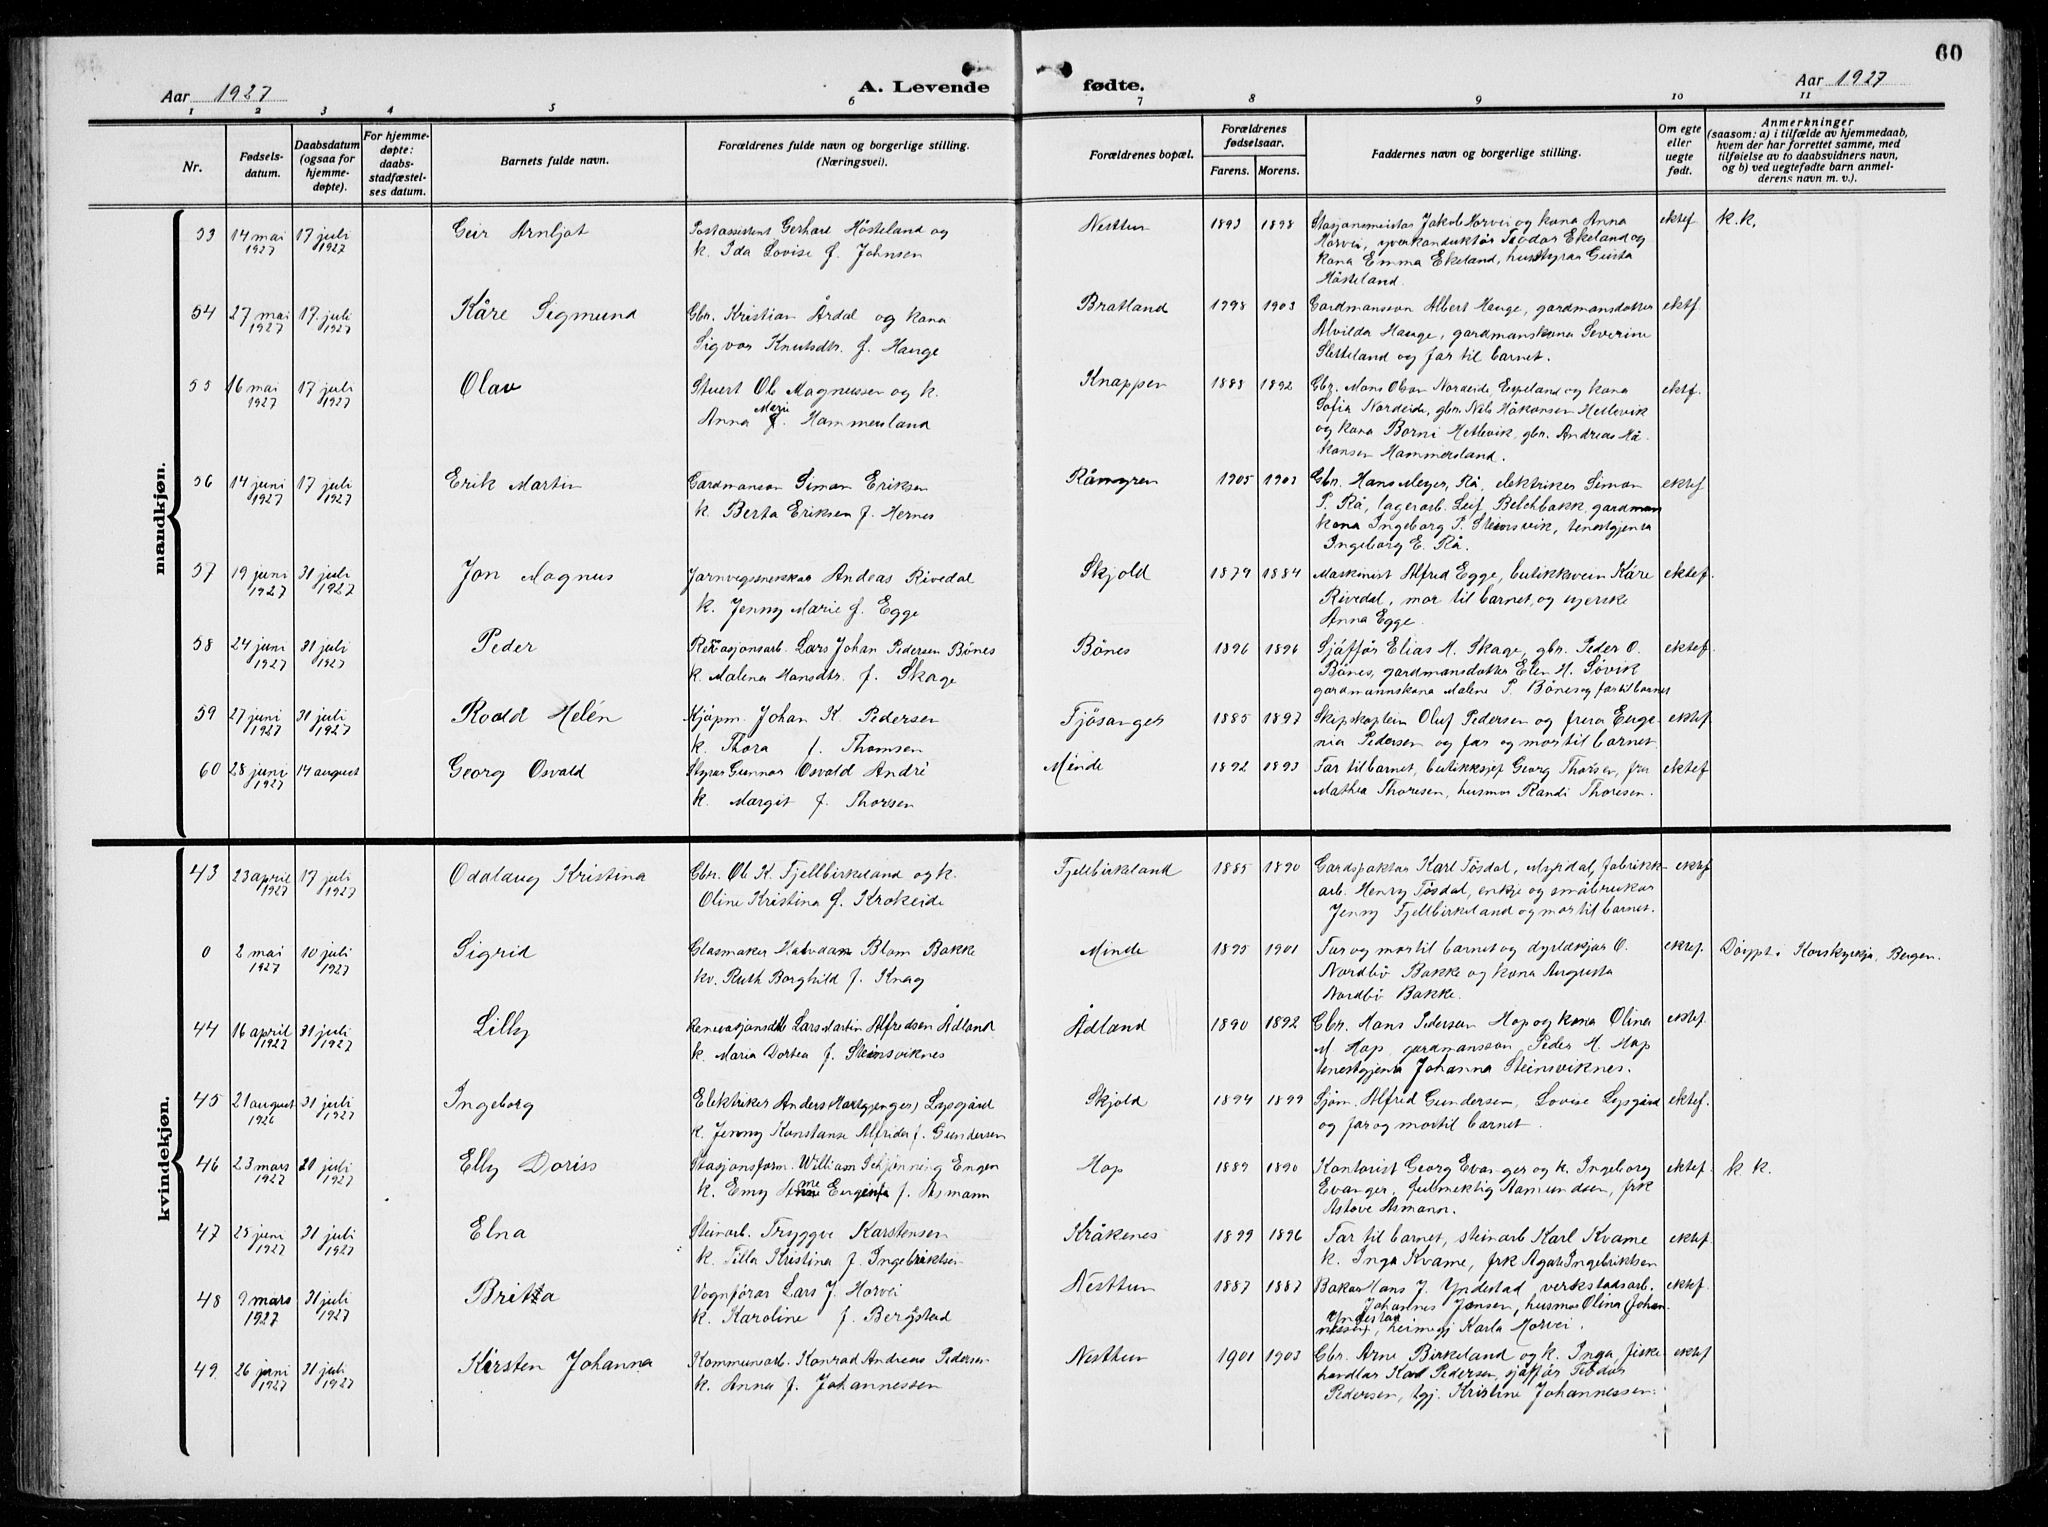 60
Aar 1927
A. Levende fødte.
Aar 1927
1 2 3 4 5 6 7 8 9 10 11
Nr.
Fødsels-
datum.
Daabsdatum
(ogsaa for
hjemme-
døpte).
For hjemme-
døpte:
daabs-
stadfæstel-
ses datum.
Barnets fulde navn.
Forældrenes fulde navn og borgerlige stilling.
(Næringsvei).
Forældrenes bopæl.
Forældrenes
fødselsaar.
Farens. Morens.
Faddernes navn og borgerlige stilling.
Om egte
eller
uegte
født.
Anmerkninger
(saasom: a) i tilfælde av hjemmedaab,
hvem der har forrettet samme, med
tilføielse av to daabsvidners navn,
og b) ved uegtefødte barn anmel-
derens navn m. v.).
mandkjøn.
53 14 mai 1927 17 juli 1927 Geir Arnljot
Postassistent Gerhard Hösteland og
k. Ida Lovise f. Johnsen
Nesttun 1893 1898
Stasjonsmeister Jakob Horvei og kona Anna
Horvei, yverkonduktör Teodor Ekeland og
kona Emma Ekeland, hustyraa Gusta
Hösteland.
ektef. k.k.
54 27 mai 1927 17. juli 1927 Kåre Sigmund
Gbr. Kristian Årdal og kona
Sigvor Knutsdtr. f. Hauge
Bratland 1898 1903
Gardmansson Albert Hauge, gardmansdotter
Alvilda Hauge, gardmanskona Severine
Sletteland og far til barnet.
ektf.
55 16 mai 1927 17 juli 1927 Olav
Stuert Ol. Magnussen og k.
Anna Marie f. Hammersland
Knappen 1883 1892
Gbr. Mons Olsen Nordeide, Espeland og kona
Sofia Nordeide, gbr. Nils Håkonsen Hetlevik
og kona Borni Hetlevik, gbr. Andreas Hå-
konsen Hammersland.
ektf.
56 14 juni 1927 17 juli 1927 Erik Martin
Gardmanson Simon Eriksen
k. Berta Eriksen f. Hernes
Råmyren 1905 1903
Gbr. Hans Meyer, Rå, elektriker Simon
P. Rå, lagerarb. Leif Belchbakk, gardman
kona Ingeborg P. Steinsvik, tenestgjenta
Ingeborg E. Rå.
ektef
57 19 juni 1927 31 juli 1927 Jon Magnus
Jarnvegssnekkar Andeas Rivedal
k. Jenny Marie f. Egge
Skjold 1879 1884
Maskinist Alfred Egge, butikksvein Kåre
Rivedal, mor til barnet, og syerske
Anna Egge.
ektef.
58 24 juni 1927 31 juli 1927 Peder
Renovasjonsarb. Lars Johan Pedersen Bönes
k. Malena Hansdtr. f. Skage
Bönes 1896 1896
Sjåffør Elias M. Skage, gbr. Peder O.
Bönes, gardmansdotter Elen H. Sövik
gardmannskona Malene P. Bönes og far til barnet
ektef.
59 27 juni 1927 31 juli 1927 Roald Helén
Kjöpm. Johan K. Pedersen
k. Thora f. Thomsen
Fjösanger 1885 1897
Skipskaptein Oluf Pedersen og frua Euge-
nia Pedersen og far og mor til barnet.
ektef.
60 28 juni 1927 14 august Georg Osvald
Styrar Gunnar Osvald André
k. Margit f. Thorsen
Minde 1892 1893
Far til barnet, butikksjef Georg Thorsen, fru
Mathea Thoresen, husmor Randi Thoresen.
ektef
kvindekjøn.
43 23 april 1927 17 juli 1927 Odalaug Kristina
Gbr. Ol. K. Fjellbirkeland og k.
Oline Kristina f. Krokeide
Fjellbirkeland 1885 1890
Gardspaktar Karl Tösdal, Myrdal, fabrikk-
arb. Henry Tösdal, enkje og småbrukar
Jenny Fjellbirkeland og mor til barnet.
ektef
0 2 mai 1927 10 juli 1927 Sigrid
Glasmaker Halvdan Blom Bakke
kv. Ruth Borghild f. Knag
Minde 1895 1901
Far og mor til barnet og dyrlækjar O.
Nordbö Bakke og kona Augusta
Nordbö Bakke.
ektef. Döypt i Korskyrkja, Bergen.
44 16 april 1927 31 juli 1927 Lilly
Lars Martin Alfredsen Ådland
k. Maria Dortea f. Steinsviknes
Ådland 1890 1892
Gbr. Hans Pedersen Hop og kona Olina
M. Hop, gardmansson Peder H. Hop
tenestgjenta Johanna Steinsviknes.
ektef.
45 21 august 1926 31 juli 1927 Ingeborg
Elektriker Anders (Hartgjenges) Lysgård
k. Jenny Konstanse Alfrida f. Gundersen
Skjold 1894 1899
Sjöm. Alfred Gundersen, Lovise Lysgård
og far og mor til barnet.
ektef.
46 23 mars 1927 20 juli 1927 Elly Doriss
Stasjonsform. William Schjönning Engen
k. Emy Eugenia f. Asmann
Hop 1889 1890
Kontorist Georg Evanger og k. Ingeborg
Evanger, fulmektig Aamundsen, frk
Astove Asmann.
ektef. k k.
47 25 juni 1927 31 juli 1927 Elna
Steinarb. Tryggve Karstensen
k. Tilla Kristina f. Ingebriktsen
Kråkenes 1899 1896
Far til barnet, steinarb Karl Kvame
k. Inga Kvame, frk Agate Ingebriktsen
ektef.
48 9 mars 1927 31 juli 1927 Britta
Vognförar Lars J. Horvei
k. Karoline f. Bergstad
Nesttun 1887 1887
Bakar Hans J. Yndestad verkstadsarb.
Johannes Jensen, husmor Olina (Johan-
nessen) Yndestad, heimegj Karla Horvei.
ektef.
49 26 juni 1927 31 juli 1927 Kirsten Johanna
Kommunearb. Konrad Andreas Pedersen
k. Anna f. Johannessen
Nesttun 1901 1903
Gbr. Arne Birkeland og k. Inga, fiske
handlar Karl Pedersen, sjåfför Teodor
Pedersen, tgj. Kristine Johannessen.
ektef